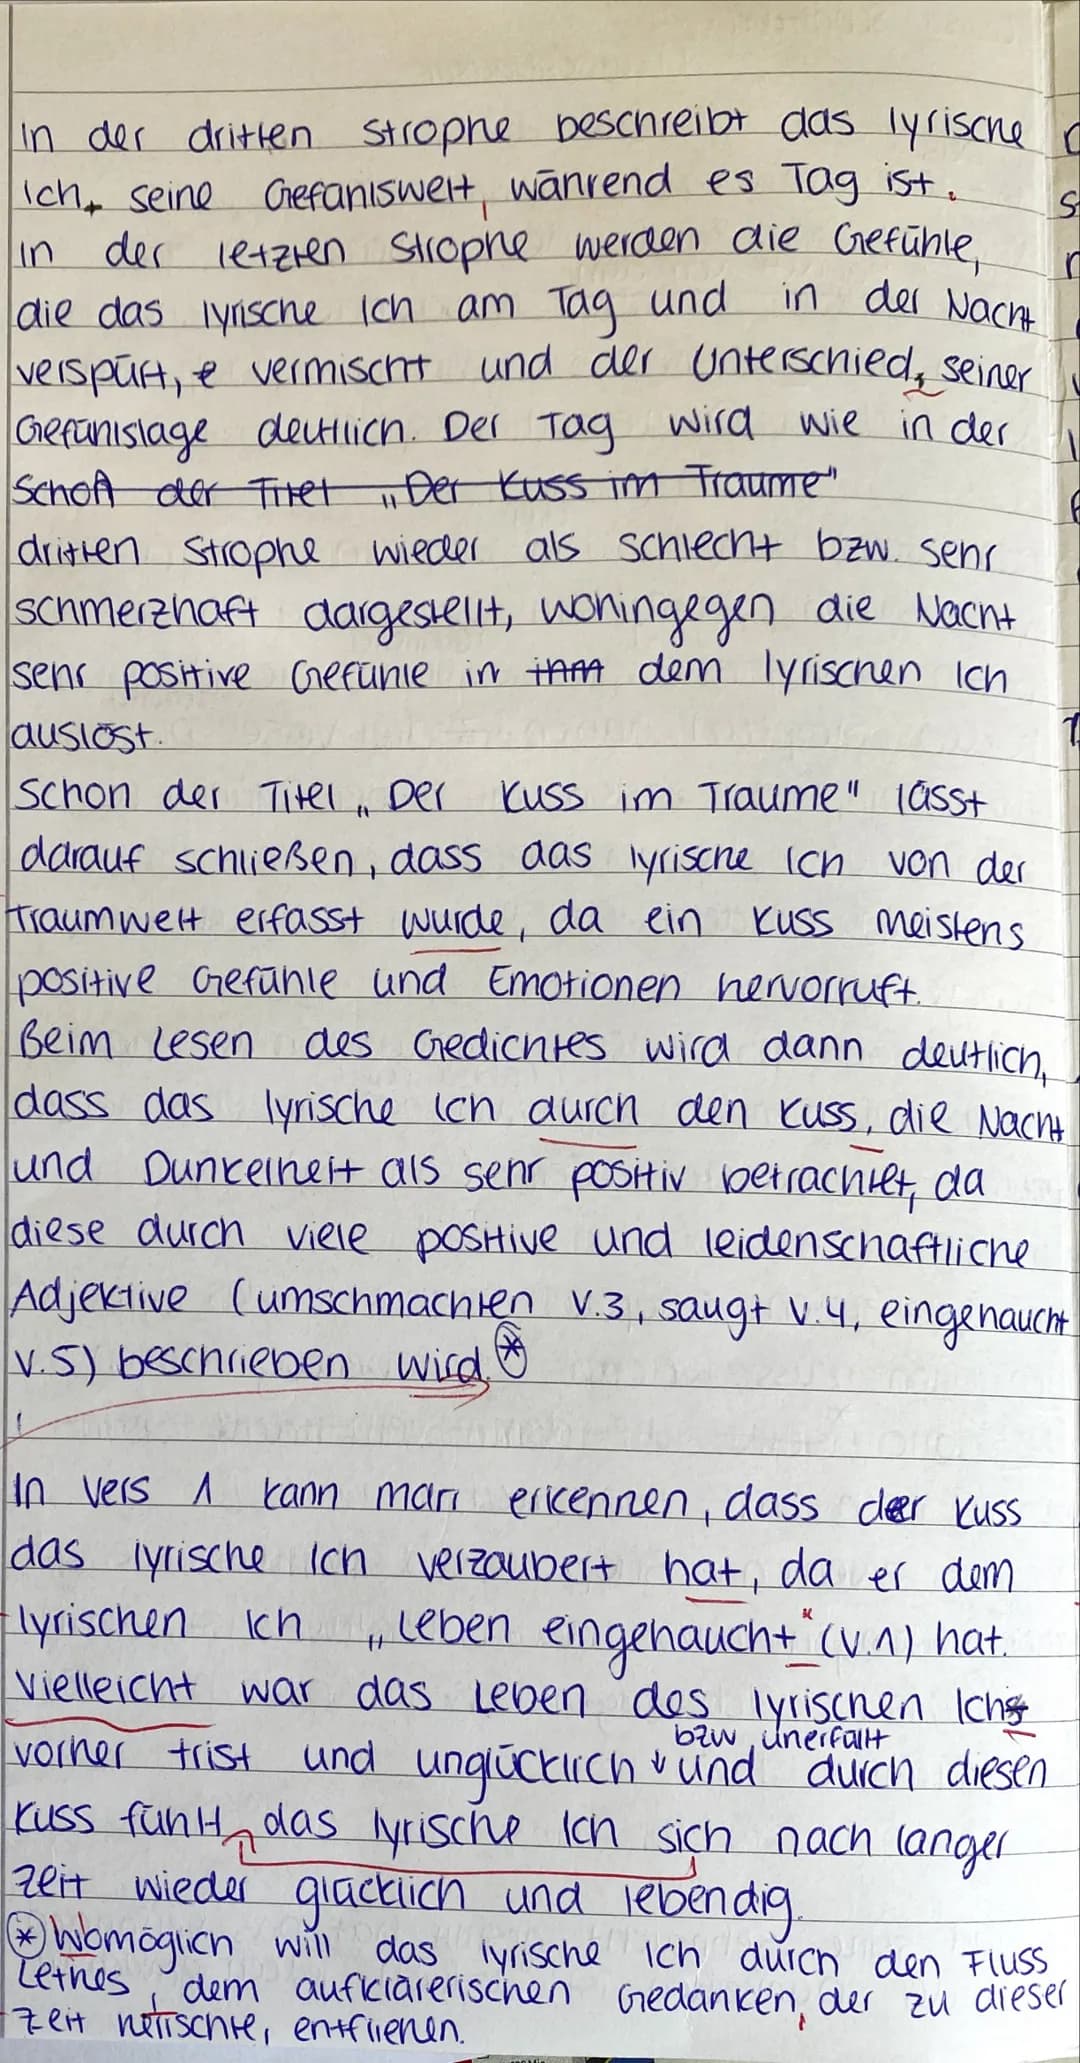 In der dritten Strophe beschreibt das lyrische
Ich, seine Gefühlswelt, während es Tag ist.
In der letzten Strophe werden die Gefühle,
die das lyrische Ich am Tag und in der Nacht
verspürt, vermischt und der Unterschied, seiner
Gefühlslage deutlich. Der Tag wird wie in der
Schon der Titel „Der Kuss im Traume"
dritten Strophe wieder als schlecht bzw. sehr
schmerzhaft dargestellt, wohingegen die Nacht
sehr positive Gefühle in ihm dem lyrischen Ich
auslöst.
Schon der Titel „Der Kuss im Traume" lässt
darauf schließen, dass das lyrische Ich von der
Traumwelt erfasst wurde, da ein Kuss meistens
positive Gefühle und Emotionen hervorruft.
Beim Lesen des Gedichtes wird dann deutlich,
dass das lyrische Ich durch den Kuss, die Nacht
und Dunkelheit als sehr positiv betrachtet, da
diese durch viele positive und leidenschaftliche
Adjektive (umschmachten V.3, saugt V.4, eingehaucht
V.5) beschrieben wird. *
In Vers 1 kann man erkennen, dass der Kuss
das lyrische Ich verzaubert hat, da er dem
lyrischen Ich „Leben eingehaucht" (V.1) hat.
Vielleicht war das Leben des lyrischen Ichs
bzw. unerfüllt
vorher trist und unglücklich und durch diesen
Kuss fühlt das lyrische Ich sich nach langer
Zeit wieder glücklich und lebendig.
* Womöglich will das lyrische Ich durch den Fluss
Lethes, dem aufklärerischen Gedanken, der zu dieser
Zeit herrschte, entfliehen.